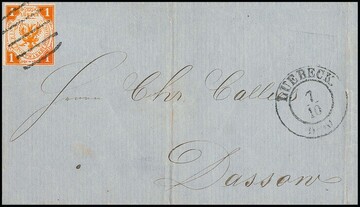 1 1
1 1
LUEBECK.
7
10
Herrn Chr Calli
Dassow